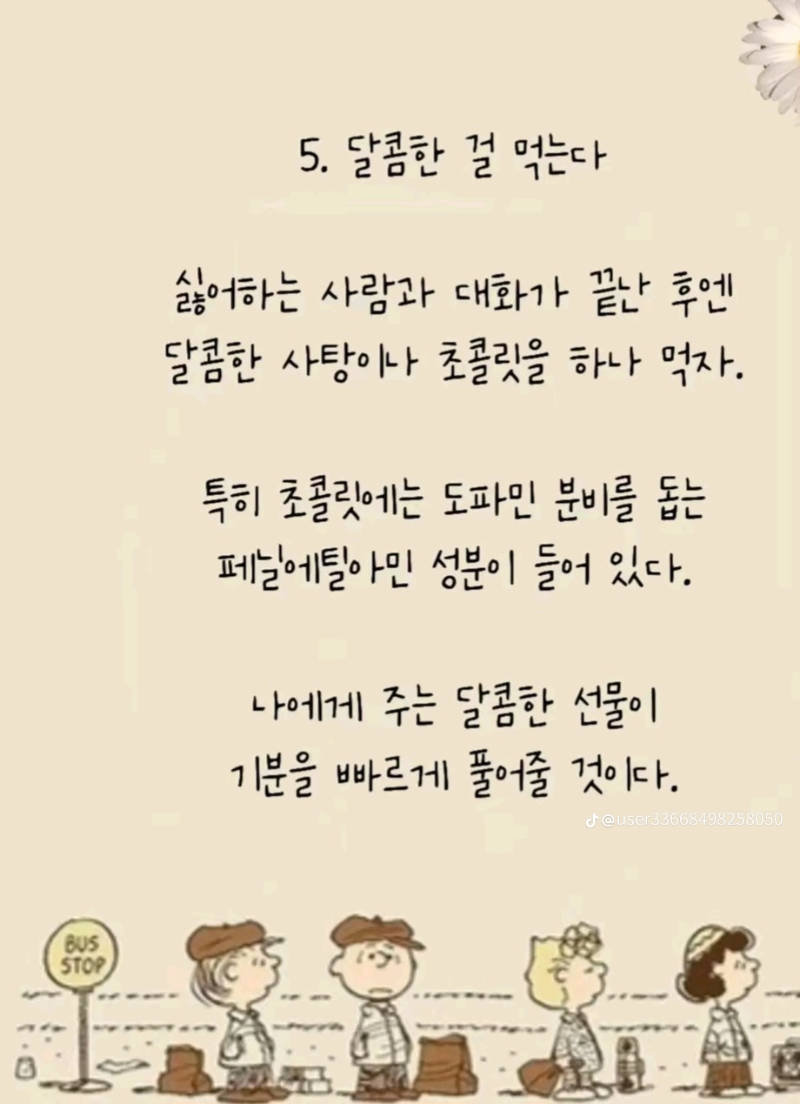 5. 달콤한 걸 먹는다
싫어하는 사람과 대화가 끝난 후엔
달콤한 사탕이나 초콜릿을 하나 먹자.
특히 초콜릿에는 도파민 분비를 돕는
페닐에틸아민 성분이 들어 있다.
나에게 주는 달콤한 선물이
기분을 빠르게 풀어줄 것이다.
@user33668498258050
BUS
STOP